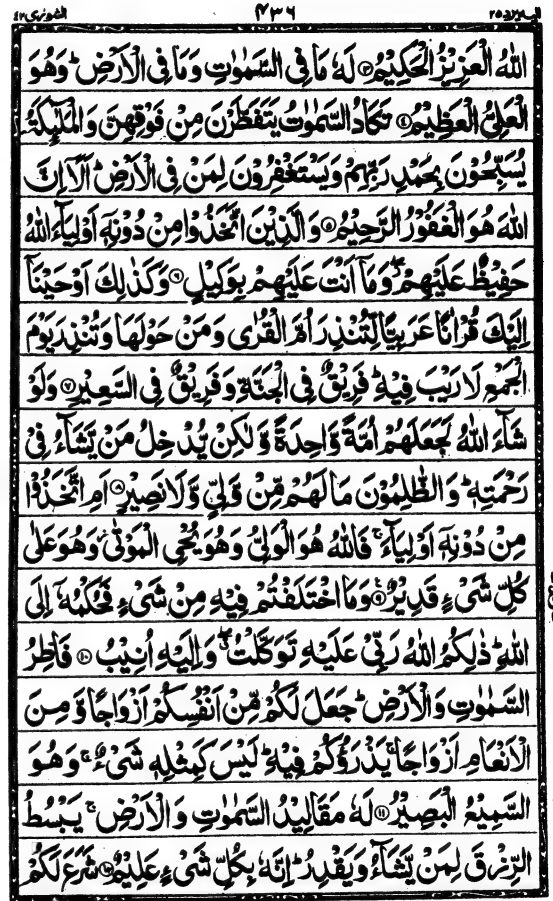 الشورٰى ٤٢ ٤٣٦ اليه يرد ٢٥
اللّٰهُ الْعَزِيْزُ الْحَكِيْمُ ۝٣ لَهٗ مَا فِى السَّمٰوٰتِ وَمَا فِى الْاَرْضِ ؕ وَهُوَ
الْعَلِىُّ الْعَظِيْمُ ۝٤ تَكَادُ السَّمٰوٰتُ يَتَفَطَّرْنَ مِنْ فَوْقِهِنَّ وَالْمَلٰٓئِكَةُ
يُسَبِّحُوْنَ بِحَمْدِ رَبِّهِمْ وَيَسْتَغْفِرُوْنَ لِمَنْ فِى الْاَرْضِ ؕ اَلَاۤ اِنَّ
اللّٰهَ هُوَ الْغَفُوْرُ الرَّحِيْمُ ۝٥ وَالَّذِيْنَ اتَّخَذُوْا مِنْ دُوْنِهٖۤ اَوْلِيَآءَ اللّٰهُ
حَفِيْظٌ عَلَيْهِمْ ۖ وَمَاۤ اَنْتَ عَلَيْهِمْ بِوَكِيْلٍ ۝٦ وَكَذٰلِكَ اَوْحَيْنَاۤ
اِلَيْكَ قُرْاٰنًا عَرَبِيًّا لِّتُنْذِرَ اُمَّ الْقُرٰى وَمَنْ حَوْلَهَا وَتُنْذِرَ يَوْمَ
الْجَمْعِ لَا رَيْبَ فِيْهِ ؕ فَرِيْقٌ فِى الْجَنَّةِ وَفَرِيْقٌ فِى السَّعِيْرِ ۝٧ وَلَوْ
شَآءَ اللّٰهُ لَجَعَلَهُمْ اُمَّةً وَّاحِدَةً وَّلٰكِنْ يُّدْخِلُ مَنْ يَّشَآءُ فِىْ
رَحْمَتِهٖ ؕ وَالظّٰلِمُوْنَ مَا لَهُمْ مِّنْ وَّلِىٍّ وَّلَا نَصِيْرٍ ۝٨ اَمِ اتَّخَذُوْا
مِنْ دُوْنِهٖۤ اَوْلِيَآءَ ۚ فَاللّٰهُ هُوَ الْوَلِىُّ وَهُوَ يُحْىِ الْمَوْتٰى ۫ وَهُوَ عَلٰى
كُلِّ شَىْءٍ قَدِيْرٌ ۝٩ وَمَا اخْتَلَفْتُمْ فِيْهِ مِنْ شَىْءٍ فَحُكْمُهٗۤ اِلَى
اللّٰهِ ؕ ذٰلِكُمُ اللّٰهُ رَبِّىْ عَلَيْهِ تَوَكَّلْتُ ۖ وَاِلَيْهِ اُنِيْبُ ۝١٠ فَاطِرُ
السَّمٰوٰتِ وَالْاَرْضِ ؕ جَعَلَ لَكُمْ مِّنْ اَنْفُسِكُمْ اَزْوَاجًا وَّمِنَ
الْاَنْعَامِ اَزْوَاجًا ۚ يَذْرَؤُكُمْ فِيْهِ ؕ لَيْسَ كَمِثْلِهٖ شَىْءٌ ۚ وَهُوَ
السَّمِيْعُ الْبَصِيْرُ ۝١١ لَهٗ مَقَالِيْدُ السَّمٰوٰتِ وَالْاَرْضِ ۚ يَبْسُطُ
الرِّزْقَ لِمَنْ يَّشَآءُ وَيَقْدِرُ ؕ اِنَّهٗ بِكُلِّ شَىْءٍ عَلِيْمٌ ۝١٢ شَرَعَ لَكُمْ